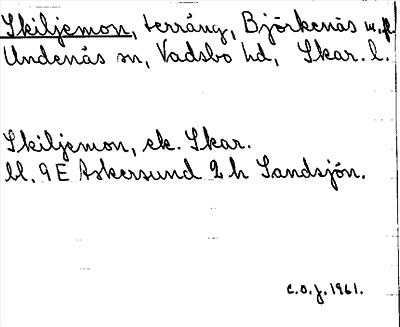 Skiljemon, terräng, Björkenäs m.fl.
Undenäs sn, Vadsbo hd, Skar. l.
Skiljemon, ek. Skar.
bl. 9E Askersund 2h Sandsjön.
c.o.j. 1961.